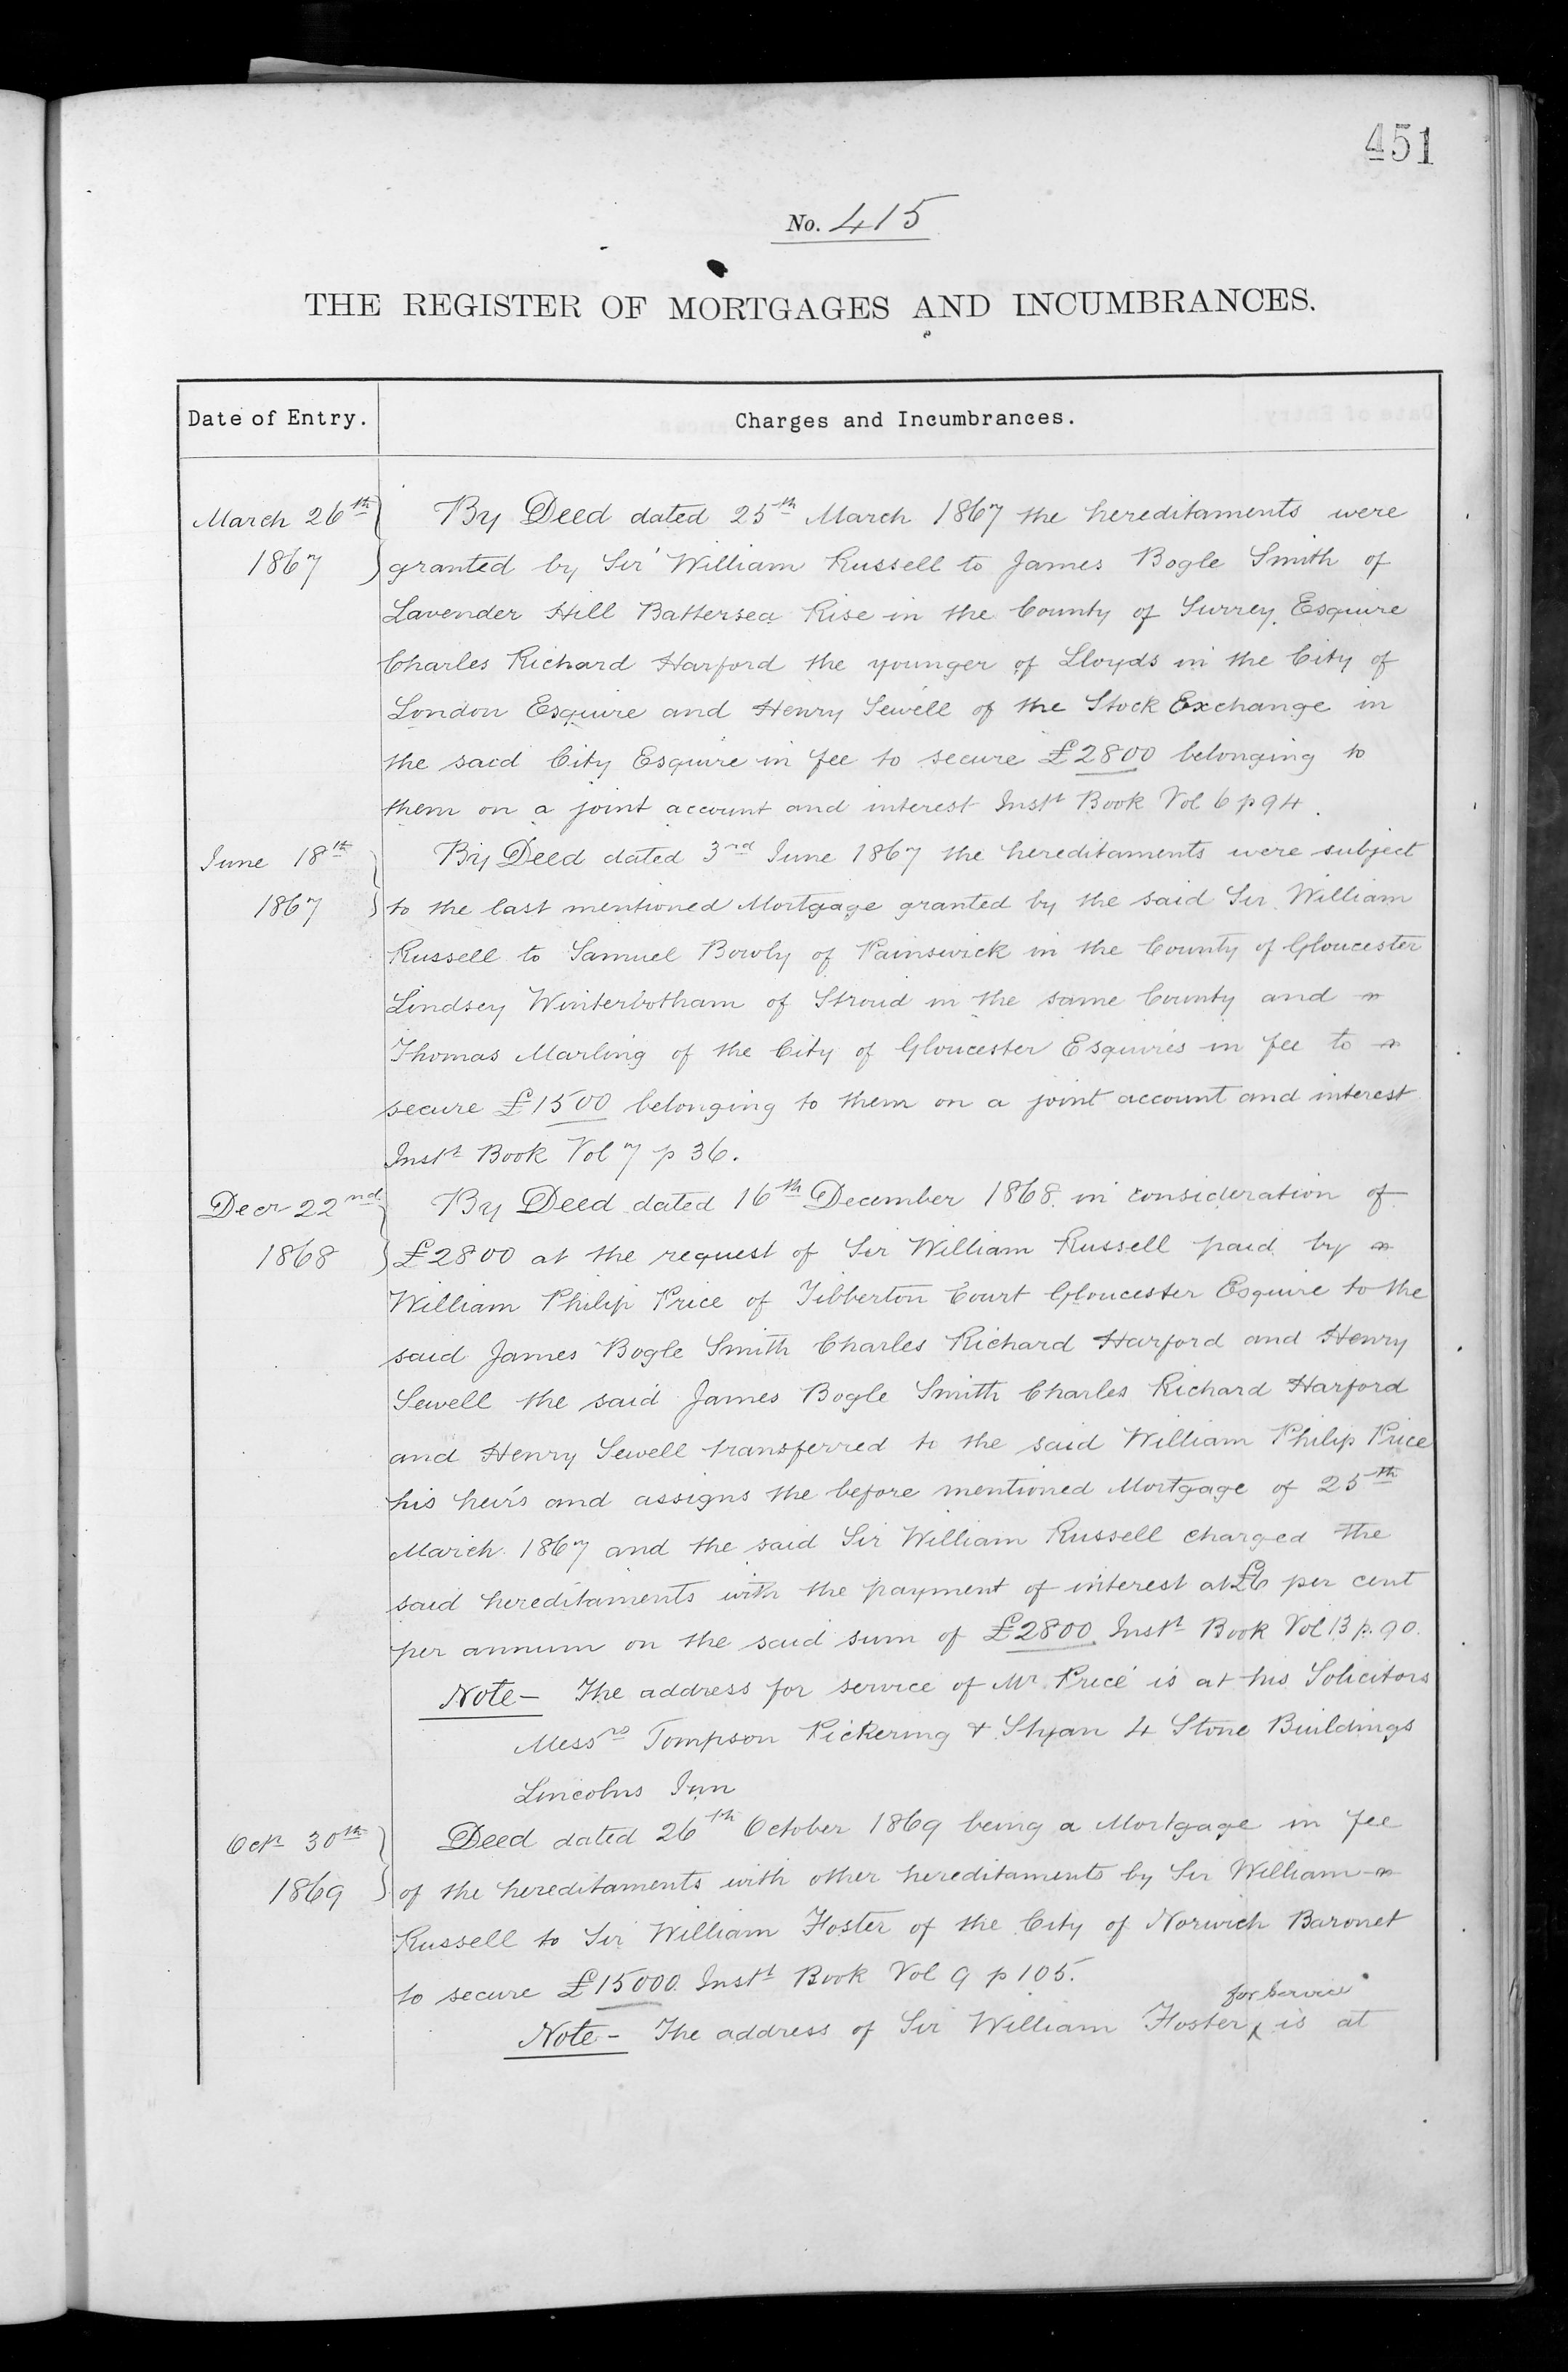 451
No. 415
THE REGISTER OF MORTGAGES AND INCUMBRANCES.
Date of Entry.
Charges and Incumbrances.
March 26th
1867
By Deed dated 25th March 1867 the hereditaments were
granted by Sir William Russell to James Bogle Smith of
Lavender Hill Battersea Rise in the County of Surrey Esquire
Charles Richard Harford the younger of Lloyds in the City of
London Esquire and Henry Sewell of the Stock Exchange in
the said City Esquire in fee to secure £2800 belonging to
them on a joint account and interest Inst Book Vol 6 p 94.
June 18th
1867
By Deed dated 3rd June 1867 the hereditaments were subject
to the last mentioned Mortgage granted by the said Sir William
Russell to Samuel Bowly of Painswick in the County of Gloucester
Lindsey Winterbotham of Stroud in the same County and
Thomas Marling of the City of Gloucester Esquires in fee to
secure £1500 belonging to them on a joint account and interest
Inst Book Vol 7 p 36.
Decr 22nd
1868
By Deed dated 16th December 1868 in consideration of
£2800 at the request of Sir William Russell paid by
William Philip Price of Tibberton Court Gloucester Esquire to the
said James Bogle Smith Charles Richard Harford and Henry
Sewell the said James Bogle Smith Charles Richard Harford
and Henry Sewell transferred to the said William Philip Price
his heirs and assigns the before mentioned Mortgage of 25th
March 1867 and the said Sir William Russell charged the
said hereditaments with the payment of interest at £6 per cent
per annum on the said sum of £2800 Inst Book Vol 13 p. 90.
Note - The address for service of Mr Price is at his Solicitors
Messrs Tompson Pickering & Styan 4 Stone Buildings
Lincolns Inn
Octr 30th
1869
Deed dated 26th October 1869 being a Mortgage in fee
of the hereditaments with other hereditaments by Sir William
Russell to Sir William Foster of the City of Norwich Baronet
to secure £15000. Inst Book Vol 9 p 105.
Note - The address of Sir William Foster for service is at